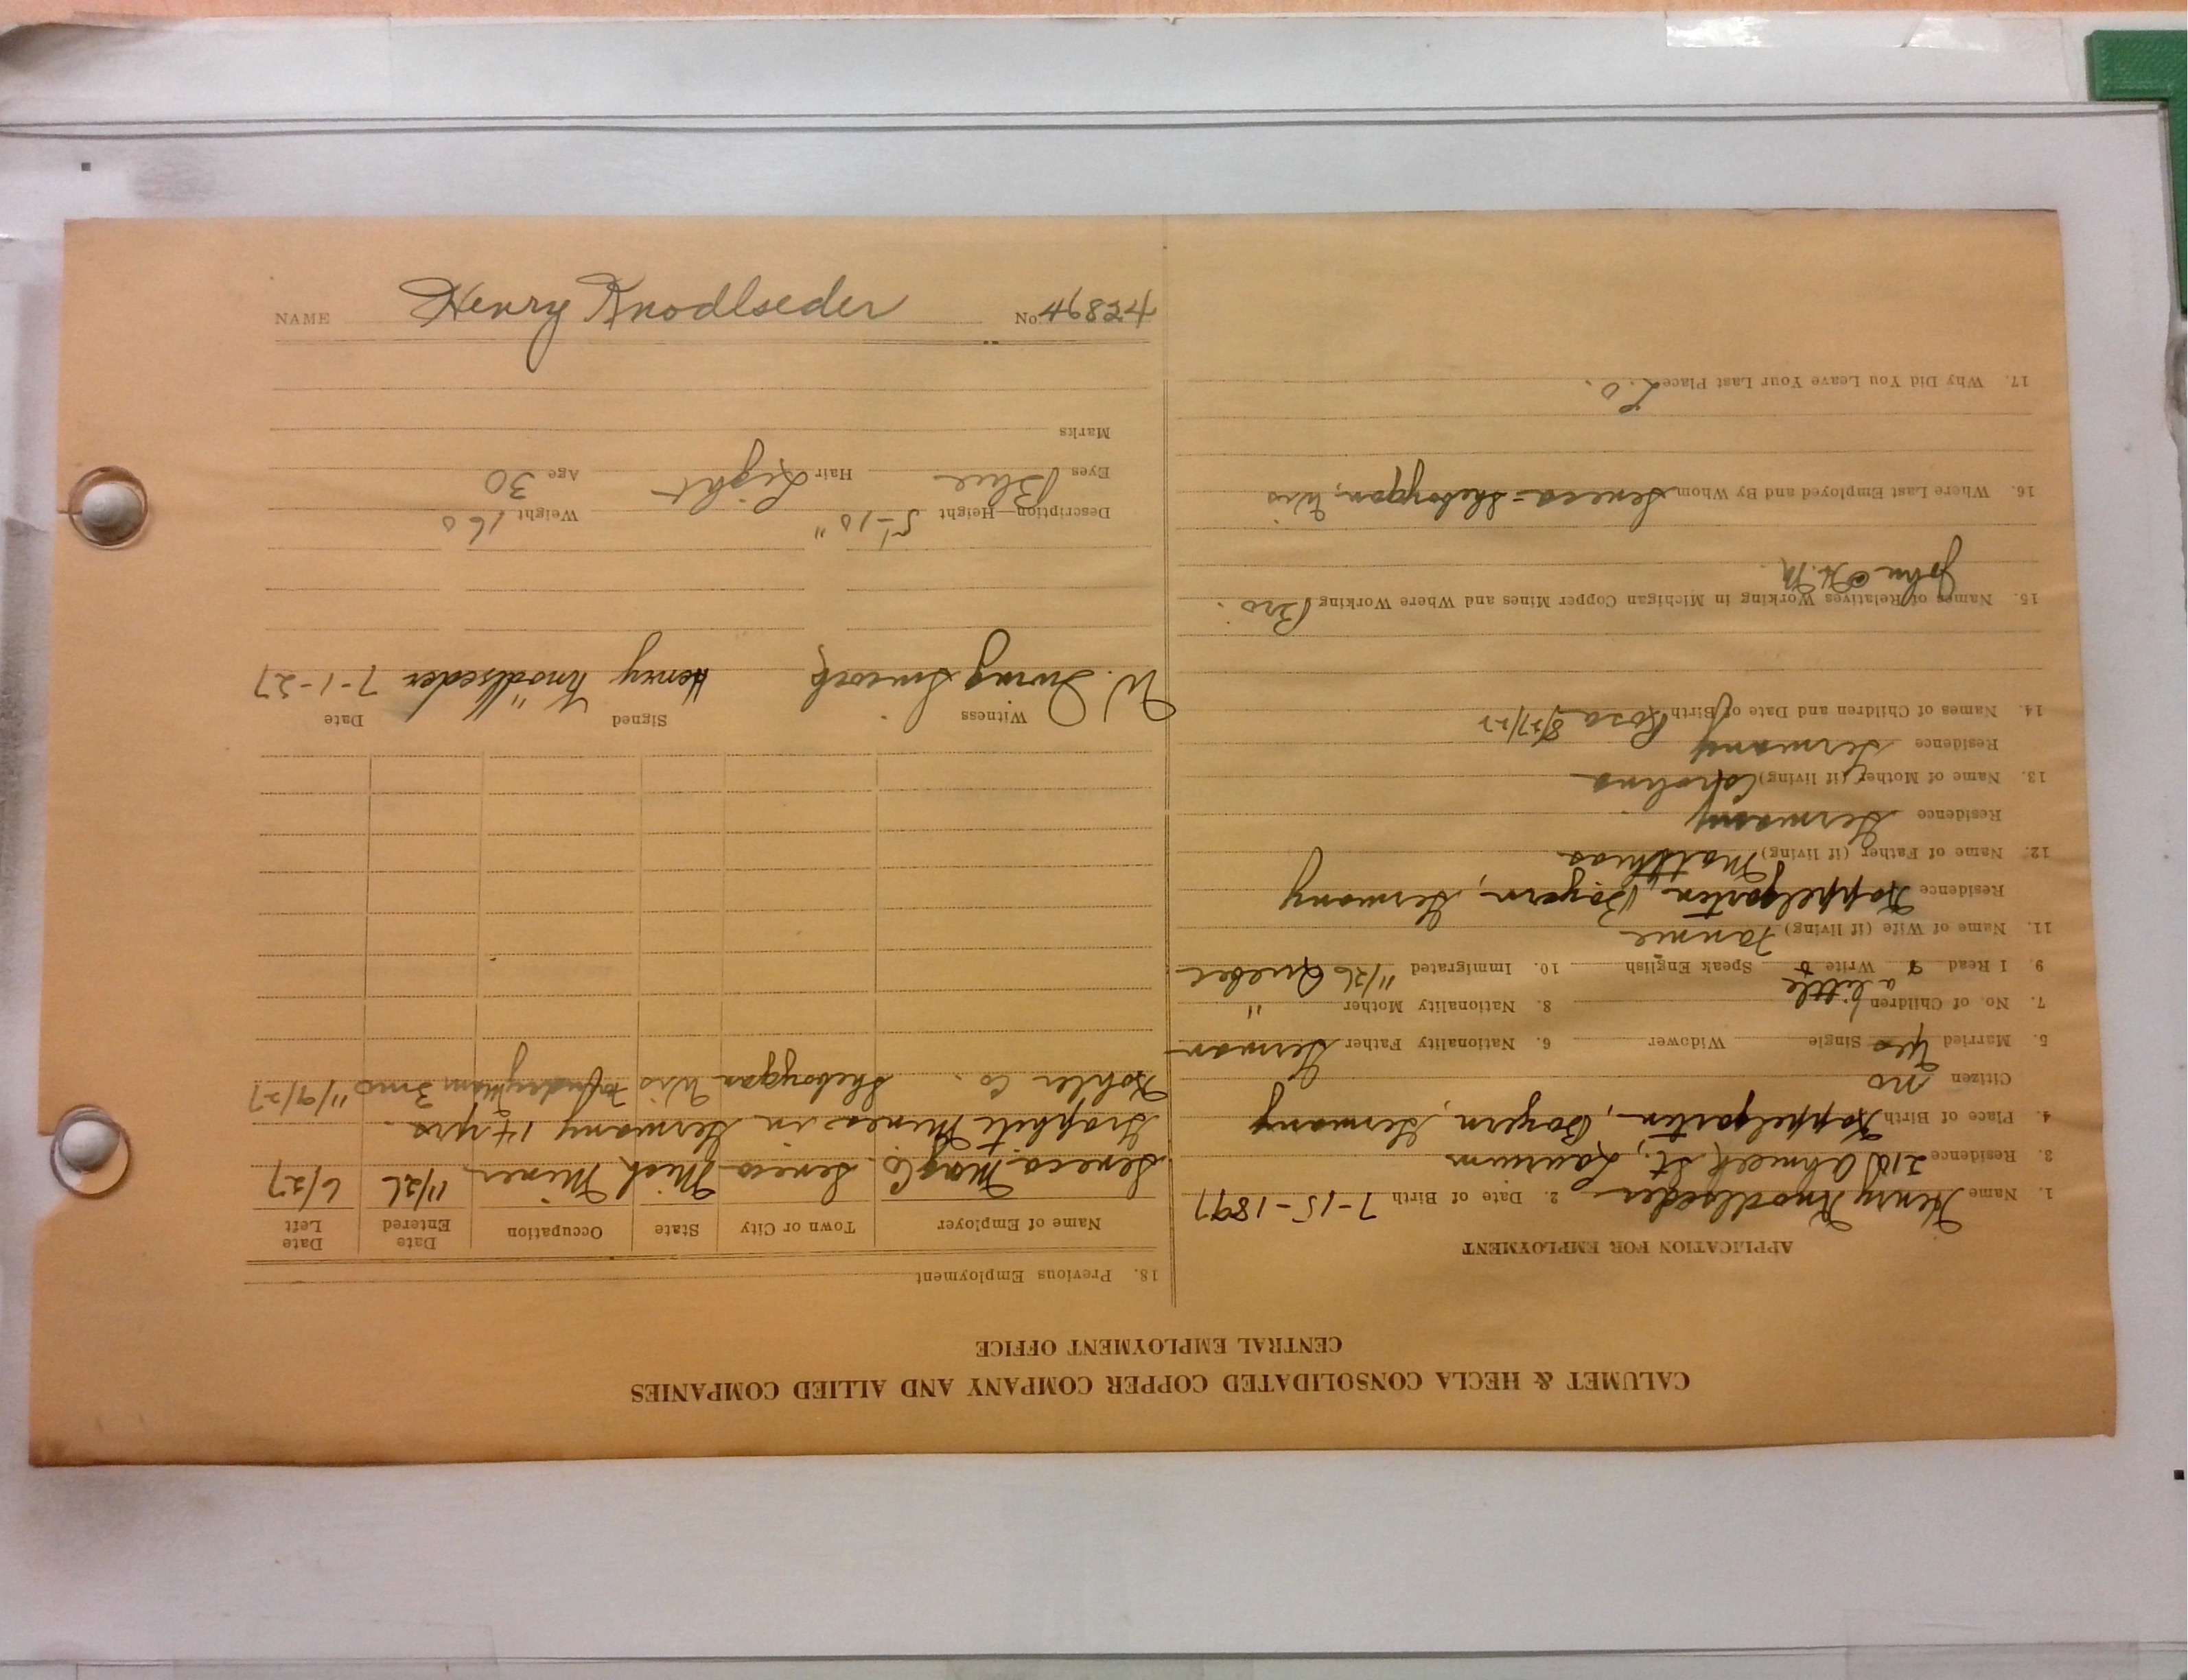 CALUMET & HECLA CONSOLIDATED COPPER COMPANY AND ALLIED COMPANIES
CENTRAL EMPLOYMENT OFFICE
APPLICATION FOR EMPLOYMENT
1. Name Henry Knodlseder 2. Date of Birth 7-15-1897
3. Residence 210 Ahmeek St., Laurium
4. Place of Birth Koppelgarten, Bayern, Germany
Citizen no
5. Married Yes Single Widower 6. Nationality Father German
7. No. of Children 8. Nationality Mother "
a little
9. I Read Write Speak English 10. Immigrated 11/26 Quebec
11. Name of Wife (if living) Fannie
Residence Koppelgarten, Bayern, Germany
12. Name of Father (if living) Matthias
Residence Germany
13. Name of Mother (if living) Carolina
Residence Germany
14. Names of Children and Date of Birth Rosa 8/27/22
15. Names of Relatives Working in Michigan Copper Mines and Where Working Bro.
John
16. Where Last Employed and By Whom Seneca - Sheboygan, Wis
17. Why Did You Leave Your Last Place L.O.
18. Previous Employment
Name of Employer Town or City State Occupation Date Entered Date Left
Seneca Mng Co. Seneca Mich Miner 11/26 6/27
Graphite Mines in Germany 14 yrs.
Kohler Co. Sheboygan Wis 3 mos 11/9/27
Witness Signed Date
W. Irving Henry Knödlseder 7-1-27
Description—Height 5'-10" Weight 160
Eyes Blue Hair Light Age 30
Marks
NAME Henry Knodlseder No 46824